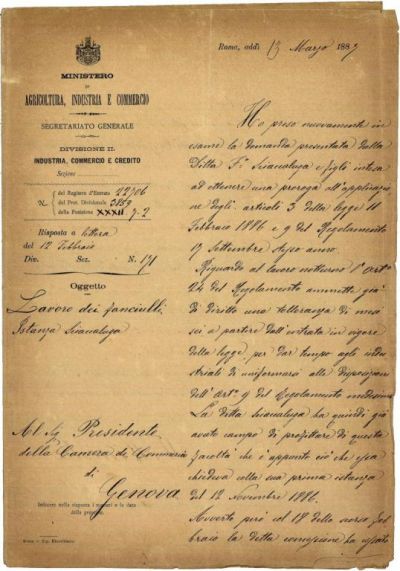 MINISTERO
DI
AGRICOLTURA, INDUSTRIA E COMMERCIO
SEGRETARIATO GENERALE
DIVISIONE II.
INDUSTRIA, COMMERCIO E CREDITO
Sezione
del Registro d'Entrata 22706
N. del Prot. Divisionale 3159
della Posizione XXXII 7-2
Risposta a lettera
del 12 Febbraio
Div. Sez. N. 171
Oggetto
Lavoro dei fanciulli
Istanza Scaniglia
Al Sig. Presidente
della Camera di Commercio
di
Genova
Indicare nella risposta i numeri e la data
della presente.
Roma, addì 13 Marzo 1887
Ho preso nuovamente in
esame la domanda presentata dalla
Ditta F. e figli intesa
ad ottenere una proroga all'applicazione
degli articoli 3 della legge 11
Febbraio 1886 e 9 del Regolamento
17 Settembre stesso anno.
Riguardo al lavoro notturno l'art.
24 del Regolamento ammette già
di diritto una tolleranza di mesi
sei a partire dall'entrata in vigore
della legge, per dar tempo agli indu
striali di uniformarsi alle disposizioni
dell'Art. 9 del Regolamento medesimo
La ditta ha quindi già
avuto campo di profittare di questa
facoltà che è appunto ciò che essa
chiedeva colla sua prima istanza
del 12 Novembre 1886.
Avverto però col 18 dello scorso Feb
braio la detta concessione ha